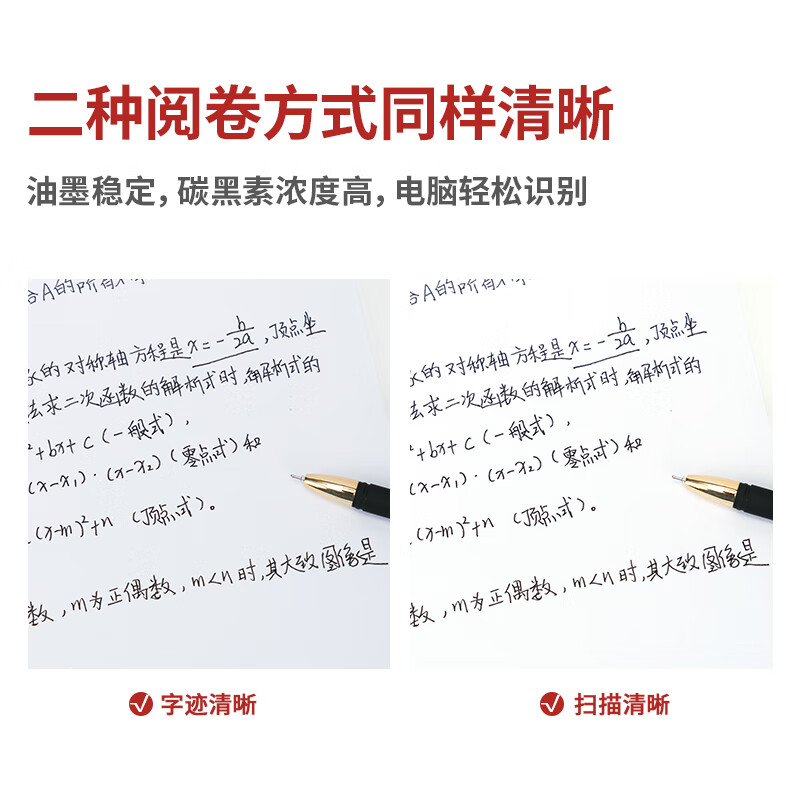 二种阅卷方式同样清晰
油墨稳定，碳黑素浓度高，电脑轻松识别
合A的所有
的对称轴方程是x=-b/2a，顶点坐
去求二次函数的解析式时，解析式的
²+bx+c（一般式），
(x-x₁)·(x-x₂)（零点式）和
(x-m)²+n（顶点式）。
数，m为正偶数，m<n时，其大致图像是
合A的所有
的对称轴方程是x=-b/2a，顶点坐
去求二次函数的解析式时，解析式的
²+bx+c（一般式），
(x-x₁)·(x-x₂)（零点式）和
.(x-m)²+n（顶点式）。
数，m为正偶数，m<n时，其大致图像是
字迹清晰
扫描清晰